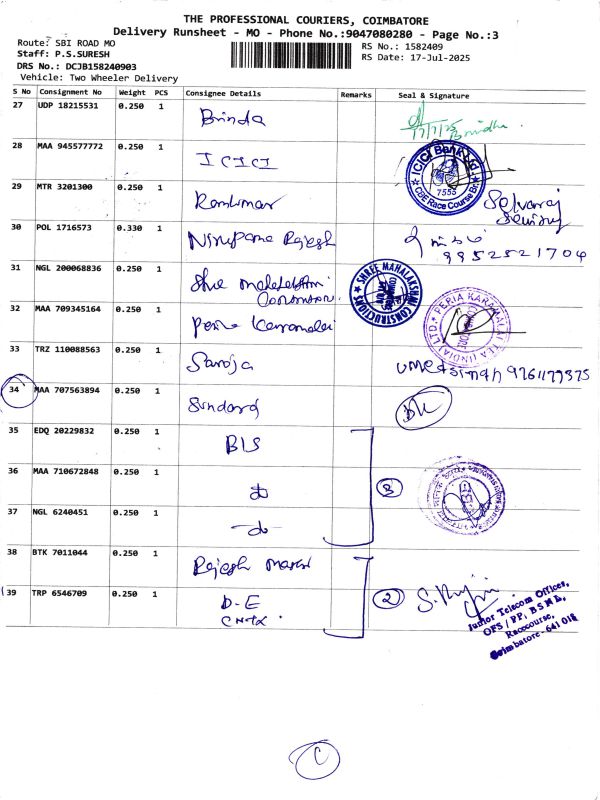 THE PROFESSIONAL COURIERS, COIMBATORE
Delivery Runsheet - MO - Phone No.:9047080280 - Page No.:3
Route: SBI ROAD MO
RS No.: 1582409
Staff: P.S.SURESH
RS Date: 17-Jul-2025
DRS No.: DCJB158240903
Vehicle: Two Wheeler Delivery
S No Consignment No Weight PCS Consignee Details Remarks Seal & Signature
27 UDP 18215531 0.250 1 Brinda
17/7/25
28 MAA 945577772 0.250 1 ICICI
ICICI Bank Ltd.
7555
CBE Race Course Br.
29 MTR 3201300 0.250 1 Ramkumar
Selvaraj
30 POL 1716573 0.330 1 Nirupama Rajesh
9952521704
31 NGL 200068836 0.250 1 Shree Mahalakshmi
SHREE MAHALAKSHMI CONSTRUCTIONS
32 MAA 709345164 0.250 1 Peria Karamalai
PERIA KARAMALAI TEA (INDIA) LTD.
33 TRZ 110088563 0.250 1 Saroja
34 MAA 707563894 0.250 1
35 EDQ 20229832 0.250 1 BIS
36 MAA 710672848 0.250 1 do
3
37 NGL 6240451 0.250 1 -do-
38 BTK 7011044 0.250 1 Rajesh
39 TRP 6546709 0.250 1 D-E
2
Junior Telecom Officer,
OFS / FP, B S N L,
Racecourse,
Coimbatore - 641 018
C